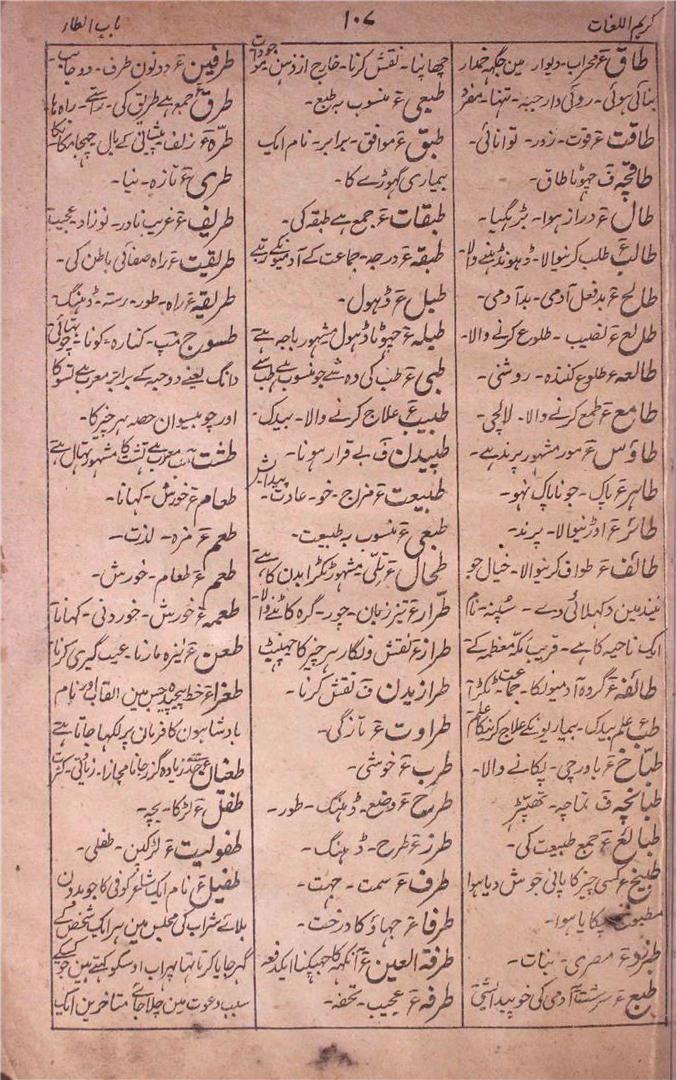 کریم اللغات
۱۰۷
باب الطار
طاق ع محراب۔ دیوار مین جگہ خمدار
بنائی ہوئی۔ روئی دار جبہ۔ تنہا۔ مفرد
طاقت ع قوت۔ زور۔ توانائی۔
طاقچہ ف چہوٹا طاق۔
طال ع دراز ہوا۔ بڑہگیا۔
طالب ع طلب کرنیوالا۔ ڈہونڈہنے والا۔
طالح ع بدفعل آدمی۔ بد آدمی۔
طالع ع نصیب۔ طلوع کرنے والا۔
طالعہ ع طلوع کنندہ۔ روشنی۔
طامع ع طمع کرنے والا۔ لالچی۔
طاؤس ع مور مشہور پرند ہے۔
طاہر ع پاک۔ جو ناپاک نہو۔
طائر ع اوڑنیوالا۔ پرند۔
طائف ع طواف کرنیوالا۔ خیال جو
نیند مین دکہلائی دے۔ سُپنہ۔ نام
ایک ناحیہ کا ہے۔ قریب مکہ معظمہ کے
طائفہ ع گروہ آدمیونکا۔ جماعت۔ ٹکڑا
طب ع علم بیدک۔ بیماریونکے علاج کرنیکا علم
طبّاخ ع باورچی۔ پکانے والا۔
طبانچہ ف تماچہ۔ تھپّڑ
طبائع ع جمع طبیعت کی۔
طبیخ ع کسی چیز کا پانی جوش دیا ہوا
مطبوخ پکایا ہوا۔
طبرزو ع مصری۔ نبات۔
طبع ع سرشت آدمی کی خو پیدایشی
چھاپنا۔ نقش کرنا۔ خارج از ذہن موجودات
طبعی ع منسوب بہ طبع۔
طبق ع موافق۔ برابر۔ نام ایک
بیماری گہوڑے کا۔
طبقات ع جمع ہے طبقہ کی۔
طبقہ ع درجہ۔ جماعت کے آدمیونکے رتبے
طبل ع ڈہول۔
طبلہ ع چہوٹا ڈہول مشہور باجہ ہے
طبی ع طب کی وہ شے جو منسوب ہے طب سے
طبیب ع علاج کرنے والا۔ بیدک۔
طپیدن ف بے قرار ہونا۔
طبیعت ع مزاج۔ خو۔ عادت۔ پیدایش
طبعی ع منسوب بہ طبیعت۔
طحال ع تلّی مشہور ٹکڑا بدن کا ہے
طرّار ع تیز زبان۔ چور۔ گرہ کاٹنے والا۔
طراز ع نقش ونگار ہر چیز کا
طرازیدن ف نقش کرنا۔
طراوت ع تازگی۔
طرب ع خوشی۔
طرح ع وضع۔ ڈہنگ۔ طور۔
طرز ع طرح۔ ڈہنگ۔
طرف ع سمت۔ جہت۔
طرفا ع جہاؤ کا درخت۔
طرفۃ العین ع آنکہہ کا جہپکنا ایکدفعہ
طرفہ ع عجیب۔ تحفہ۔
طرفین ع دونون طرف۔ دو جانب۔
طرق ع جمع ہے طریق کی۔ رستے۔ راہ ہا
طرّہ ع زلف پیشانی کے بال
طری ع تازہ۔ نیا۔
طریف ع غریب نادر۔ نوزاد۔ عجیب
طریقت ع راہ صفائی باطن کی۔
طریقہ ع راہ۔ طور۔ رستہ۔ ڈہنگ۔
طسوج کنارہ۔ کونا۔ چوتہائی
دانگ یعنے دو جبہ کے برابر معرب ہے تسو کا
اور چوبیسوان حصہ ہر چیز کا۔
طشت معرب ہے تشت کا مشہور تہال ہے
طعام ع خورش۔ کہانا۔
طعم ع مزہ۔ لذت۔
طعم ع طعام۔ خورش۔
طعمہ ع خورش۔ خوردنی۔ کہانا
طعن ع نیزہ مارنا۔ عیب گیری کرنا
طغرا ع خط پیچیدہ جس مین القاب اور نام
بادشاہون کا فرمان پر لکہا جاتا ہے
طغیان ع حد سے زیادہ گزر جانا مجازاً۔ زیادتی۔ کثرت
طفل ع لڑکا۔ بچہ۔
طفولیت ع لڑکپن۔ طفلی۔
طفیل ع نام ایک شاعر کوفی کا جو بدون
بلائے شراب کی مجلس مین ہر ایک شخص کے
گہر جایا کرتا تہا پہر اب اوسکو کہتے ہین جو کسیکے
سبب دعوت مین چلا جائے متاخرین ایک